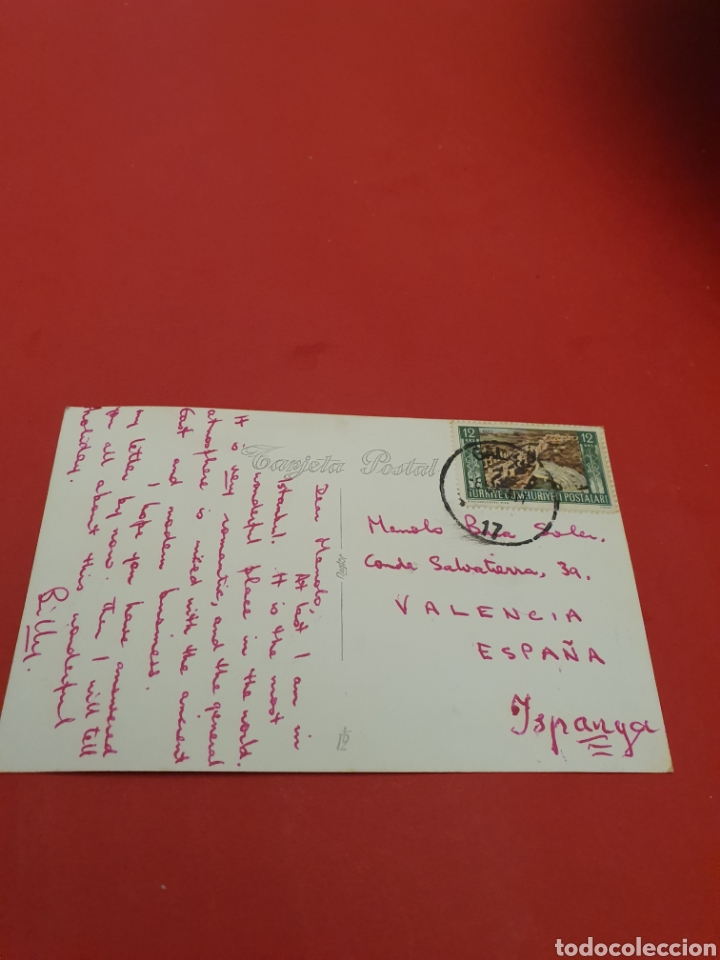 Tarjeta Postal
Dear Manolo,
At last I am in
Istanbul. It is the most
wonderful place in the world.
It is very romantic, and the general
atmosphere is mixed with the ancient
East and modern business.
I hope you have answered
my letter by now. Then I will tell
you all about this wonderful
holiday.
Billy.
12 12
TÜRKİYE CUMHURİYETİ POSTALARI
17
Manolo Soler,
Conde Salvatierra, 39,
VALENCIA
ESPAÑA
Ispanya
todocoleccion